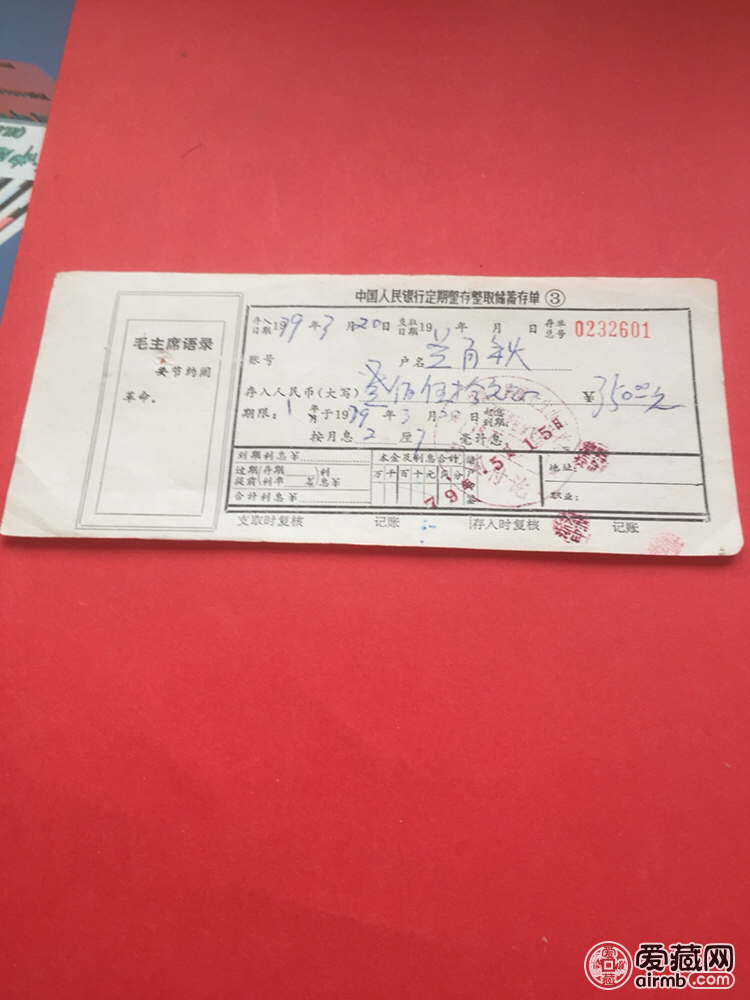 中国人民银行定期整存整取储蓄存单③
毛主席语录
要节约闹
革命。
存入日期1979年3月20日 支取日期19 年 月 日 存单总号 0232601
账号 户名
存入人民币(大写) 佰伍拾元 ¥350.00元
期限:1年月于1979年3月20日起息到期。
按月息2厘7毫计息:
到期利息¥
过期 存期 利
提前 利率 % 息¥
合计利息¥
本金及利息合计
万千百十元角分
地址:
职业:
79 5 15日
讨论
支取时复核 记账 存入时复核 记账
爱藏网
airmb.com